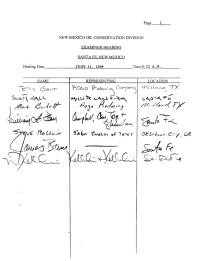 Page 1
NEW MEXICO OIL CONSERVATION DIVISION
EXAMINER HEARING
SANTA FE, NEW MEXICO
Hearing Date JUNE 11, 1998 Time 8:15 A.M.
NAME REPRESENTING LOCATION
Terry Gant POGO Producing Company Midland, TX
Scott Hall Miller Law Firm Santa Fe
Pogo Producing Midland TX
Campbell, Carr, Santa Fe
Steve Baldwin OKLAHOMA CITY, OK
James Bruce Santa Fe
Kellahin & Kellahin Santa Fe